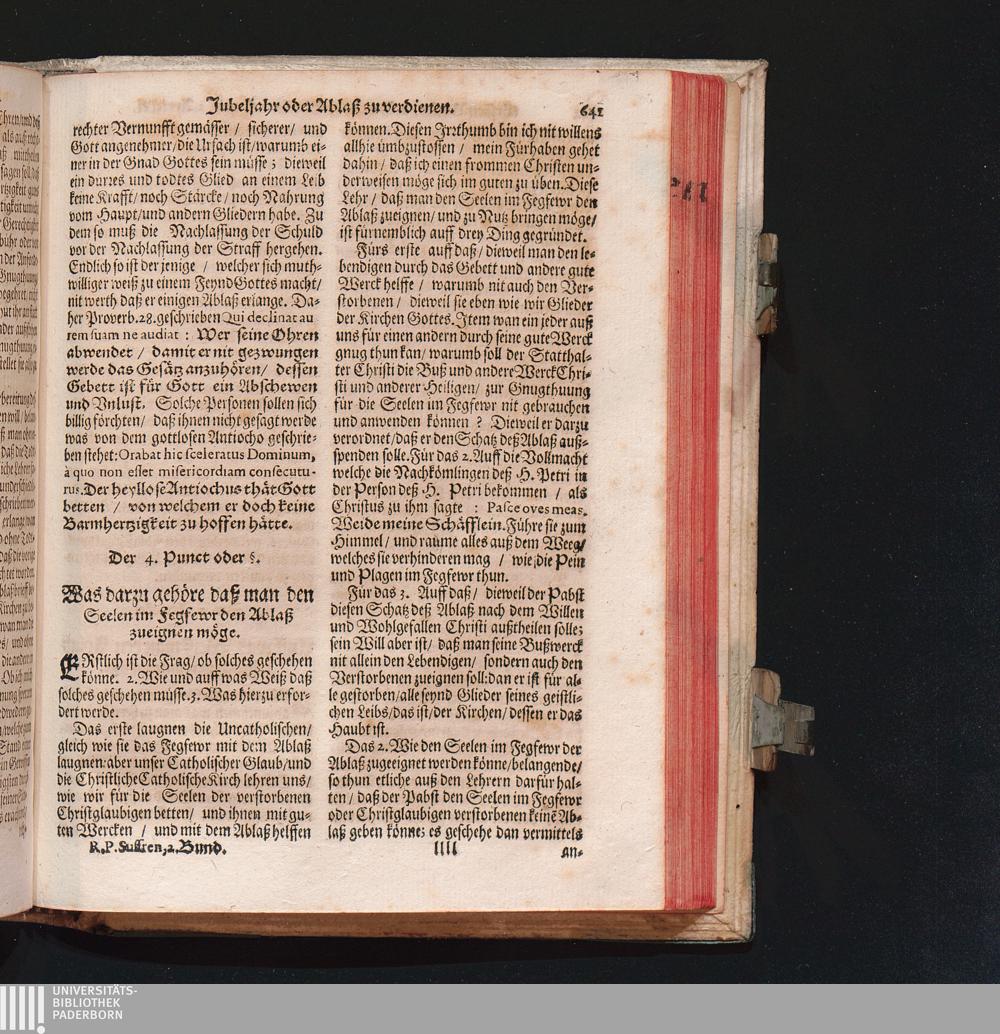 Jubeljahr oder Ablaß zu verdienen.
641
rechter Vernunfft gemässer / sicherer / und
Gott angenehmer / die Ursach ist / warumb ei-
ner in der Gnad Gottes sein müsse ; dieweil
ein durres und todtes Glied an einem Leib
keine Krafft / noch Stärcke / noch Nahrung
vom Haupt / und andern Gliedern habe. Zu
dem so muß die Nachlassung der Schuld
vor der Nachlassung der Straff hergehen.
Endlich so ist der jenige / welcher sich muth-
williger weiß zu einem Feynd Gottes macht /
nit werth daß er einigen Ablaß erlange. Da-
her Proverb. 28. geschrieben Qui declinat au
rem suam ne audiat : Wer seine Ohren
abwendet / damit er nit gezwungen
werde das Gesätz anzuhören / dessen
Gebett ist für Gott ein Abschewen
und Vnlust. Solche Personen sollen sich
billig förchten / daß ihnen nicht gesagt werde
was von dem gottlosen Antiocho geschrie-
ben stehet: Orabat hic sceleratus Dominum,
à quo non esset misericordiam consecutu-
rus. Der heyllose Antiochus thät Gott
betten / von welchem er doch keine
Barmhertzigkeit zu hoffen hätte.
Der 4. Punct oder §.
Was darzu gehöre daß man den
Seelen im Fegfewr den Ablaß
zueignen möge.
ERstlich ist die Frag / ob solches geschehen
könne. 2. Wie und auff was Weiß daß
solches geschehen müsse. 3. Was hierzu erfor-
dert werde.
Das erste laugnen die Uncatholischen /
gleich wie sie das Fegfewr mit dem Ablaß
laugnen: aber unser Catholischer Glaub / und
die Christliche Catholische Kirch lehren uns /
wie wir für die Seelen der verstorbenen
Christglaubigen betten / und ihnen mit gu-
ten Wercken / und mit dem Ablaß helffen
R. P. Suffren, 2. Bund.
können. Diesen Irrthumb bin ich nit willens
allhie umbzustossen / mein Fürhaben gehet
dahin / daß ich einen frommen Christen un-
derweisen möge sich im guten zu üben. Diese
Lehr / daß man den Seelen im Fegfewr den
Ablaß zueignen / und zu Nutz bringen möge /
ist fürnemblich auff drey Ding gegründet.
Fürs erste auff daß / dieweil man den le-
bendigen durch das Gebett und andere gute
Werck helffe / warumb nit auch den Ver-
storbenen / dieweil sie eben wie wir Glieder
der Kirchen Gottes. Item wan ein jeder auß
uns für einen andern durch seine gute Werck
gnug thun kan / warumb soll der Statthal-
ter Christi die Buß und andere Werck Chri-
sti und anderer Heiligen / zur Gnugthuung
für die Seelen im Fegfewr nit gebrauchen
und anwenden können ? Dieweil er darzu
verordnet / daß er den Schatz deß Ablaß auß-
spenden solle. Für das 2. Auff die Vollmacht
welche die Nachkömlingen deß H. Petri in
der Person deß H. Petri bekommen / als
Christus zu ihm sagte : Pasce oves meas.
Weide meine Schäfflein. Führe sie zum
Himmel / und raume alles auß dem Weeg /
welches sie verhinderen mag / wie ; die Pein
und Plagen im Fegfewr thun.
Für das 3. Auff daß / dieweil der Pabst
diesen Schatz deß Ablaß nach dem Willen
und Wohlgefallen Christi außtheilen solle ;
sein Will aber ist / daß man seine Bußwerck
nit allein den Lebendigen / sondern auch den
Verstorbenen zueignen soll: dan er ist für al-
le gestorben / alle seynd Glieder seines geistli-
chen Leibs / das ist / der Kirchen / dessen er das
Haubt ist.
Das 2. Wie den Seelen im Fegfewr der
Ablaß zugeeignet werden könne / belangende /
so thun etliche auß den Lehrern darfür hal-
ten / daß der Pabst den Seelen im Fegfewr
oder Christglaubigen verstorbenen keinẽ Ab-
laß geben könne ; es geschehe dan vermittels
llll
an-
UNIVERSITÄTS-
BIBLIOTHEK
PADERBORN